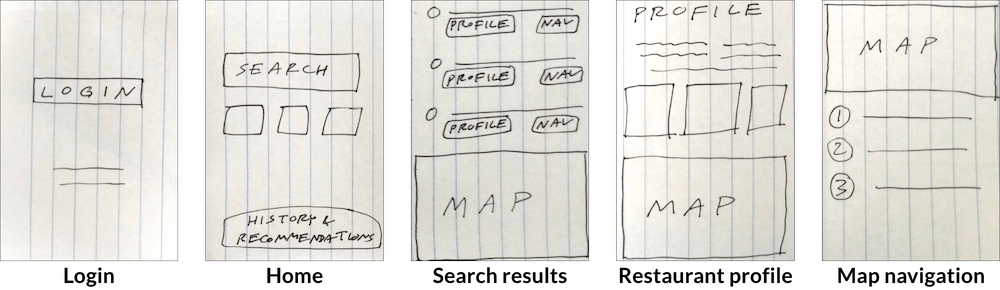 LOGIN
Login
SEARCH
HISTORY &
RECOMMENDATIONS
Home
PROFILE NAV
PROFILE NAV
PROFILE NAV
MAP
Search results
PROFILE
MAP
Restaurant profile
MAP
1
2
3
Map navigation